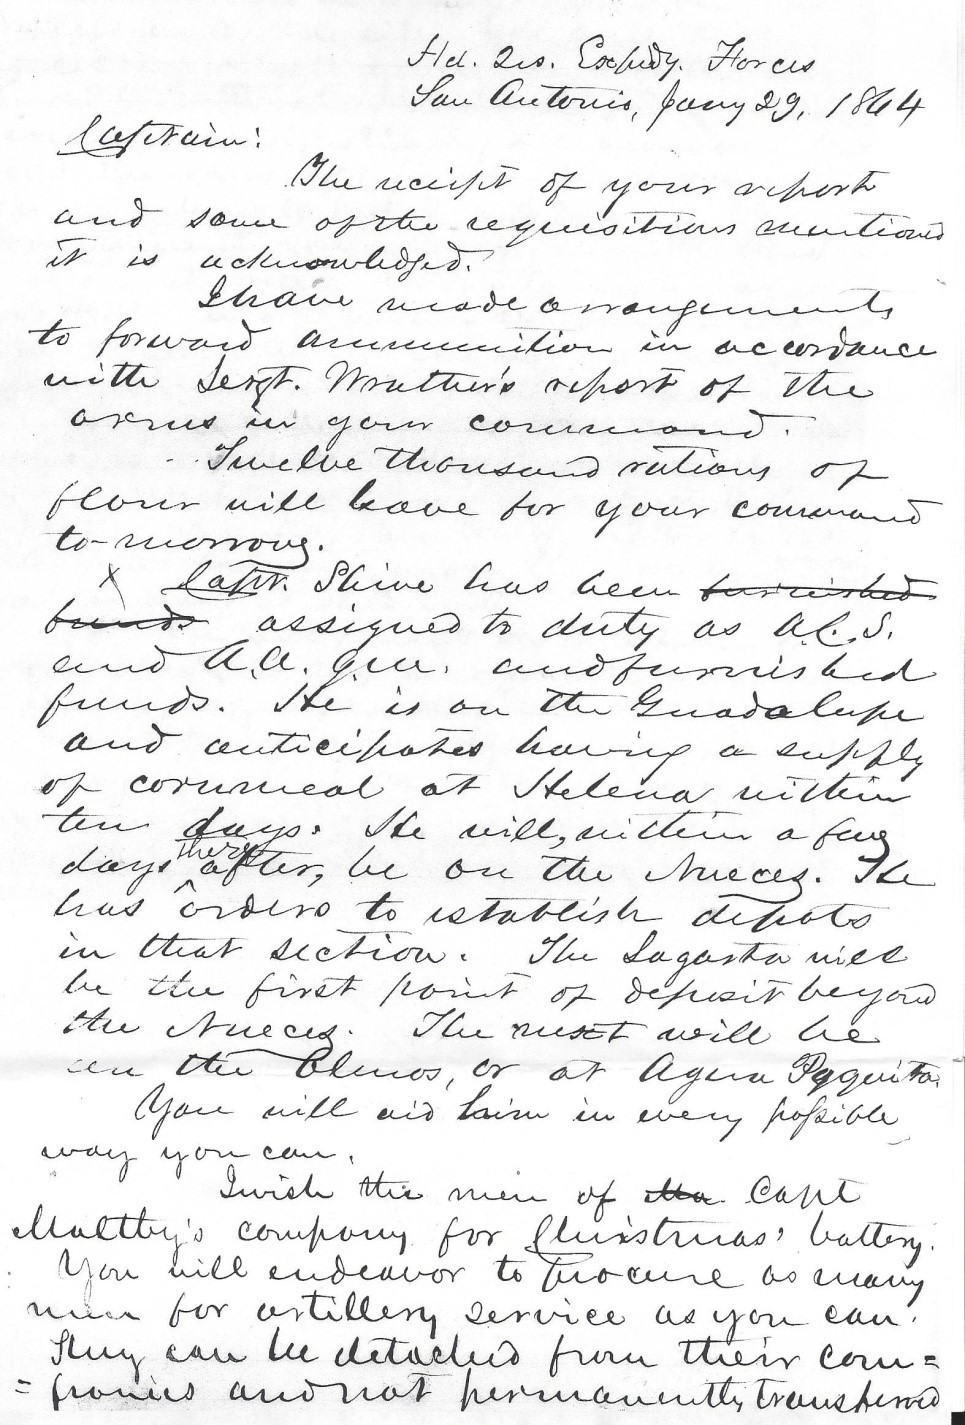 Hd. Qrs. Expedy. Forces
San Antonio, Jany 29, 1864
Captain:
The receipt of your report
and some of the requisitions mentioned
it is acknowledged.
I have made arrangements
to forward ammunition in accordance
with Sergt. Wrather's report of the
arms in your command.
Twelve thousand rations of
flour will leave for your command
to-morrow.
x Capt. Shive has been furnished
funds assigned to duty as A.C.S.
and A.A.Q.M. and furnished
funds. He is on the Guadalupe
and anticipates having a supply
of cornmeal at Helena within
ten days. He will, within a few
days thereafter, be on the Nueces. He
has orders to establish depots
in that section. The Lagarta will
be the first point of deposit beyond
the Nueces. The next will be
on the Olmos, or at Agua Poquita.
You will aid him in every possible
way you can.
I wish the men of Ma Capt
Maltby's company for Christmas' battery.
You will endeavor to procure as many
men for artillery service as you can.
They can be detached from their com=
=panies and not permanently transferred